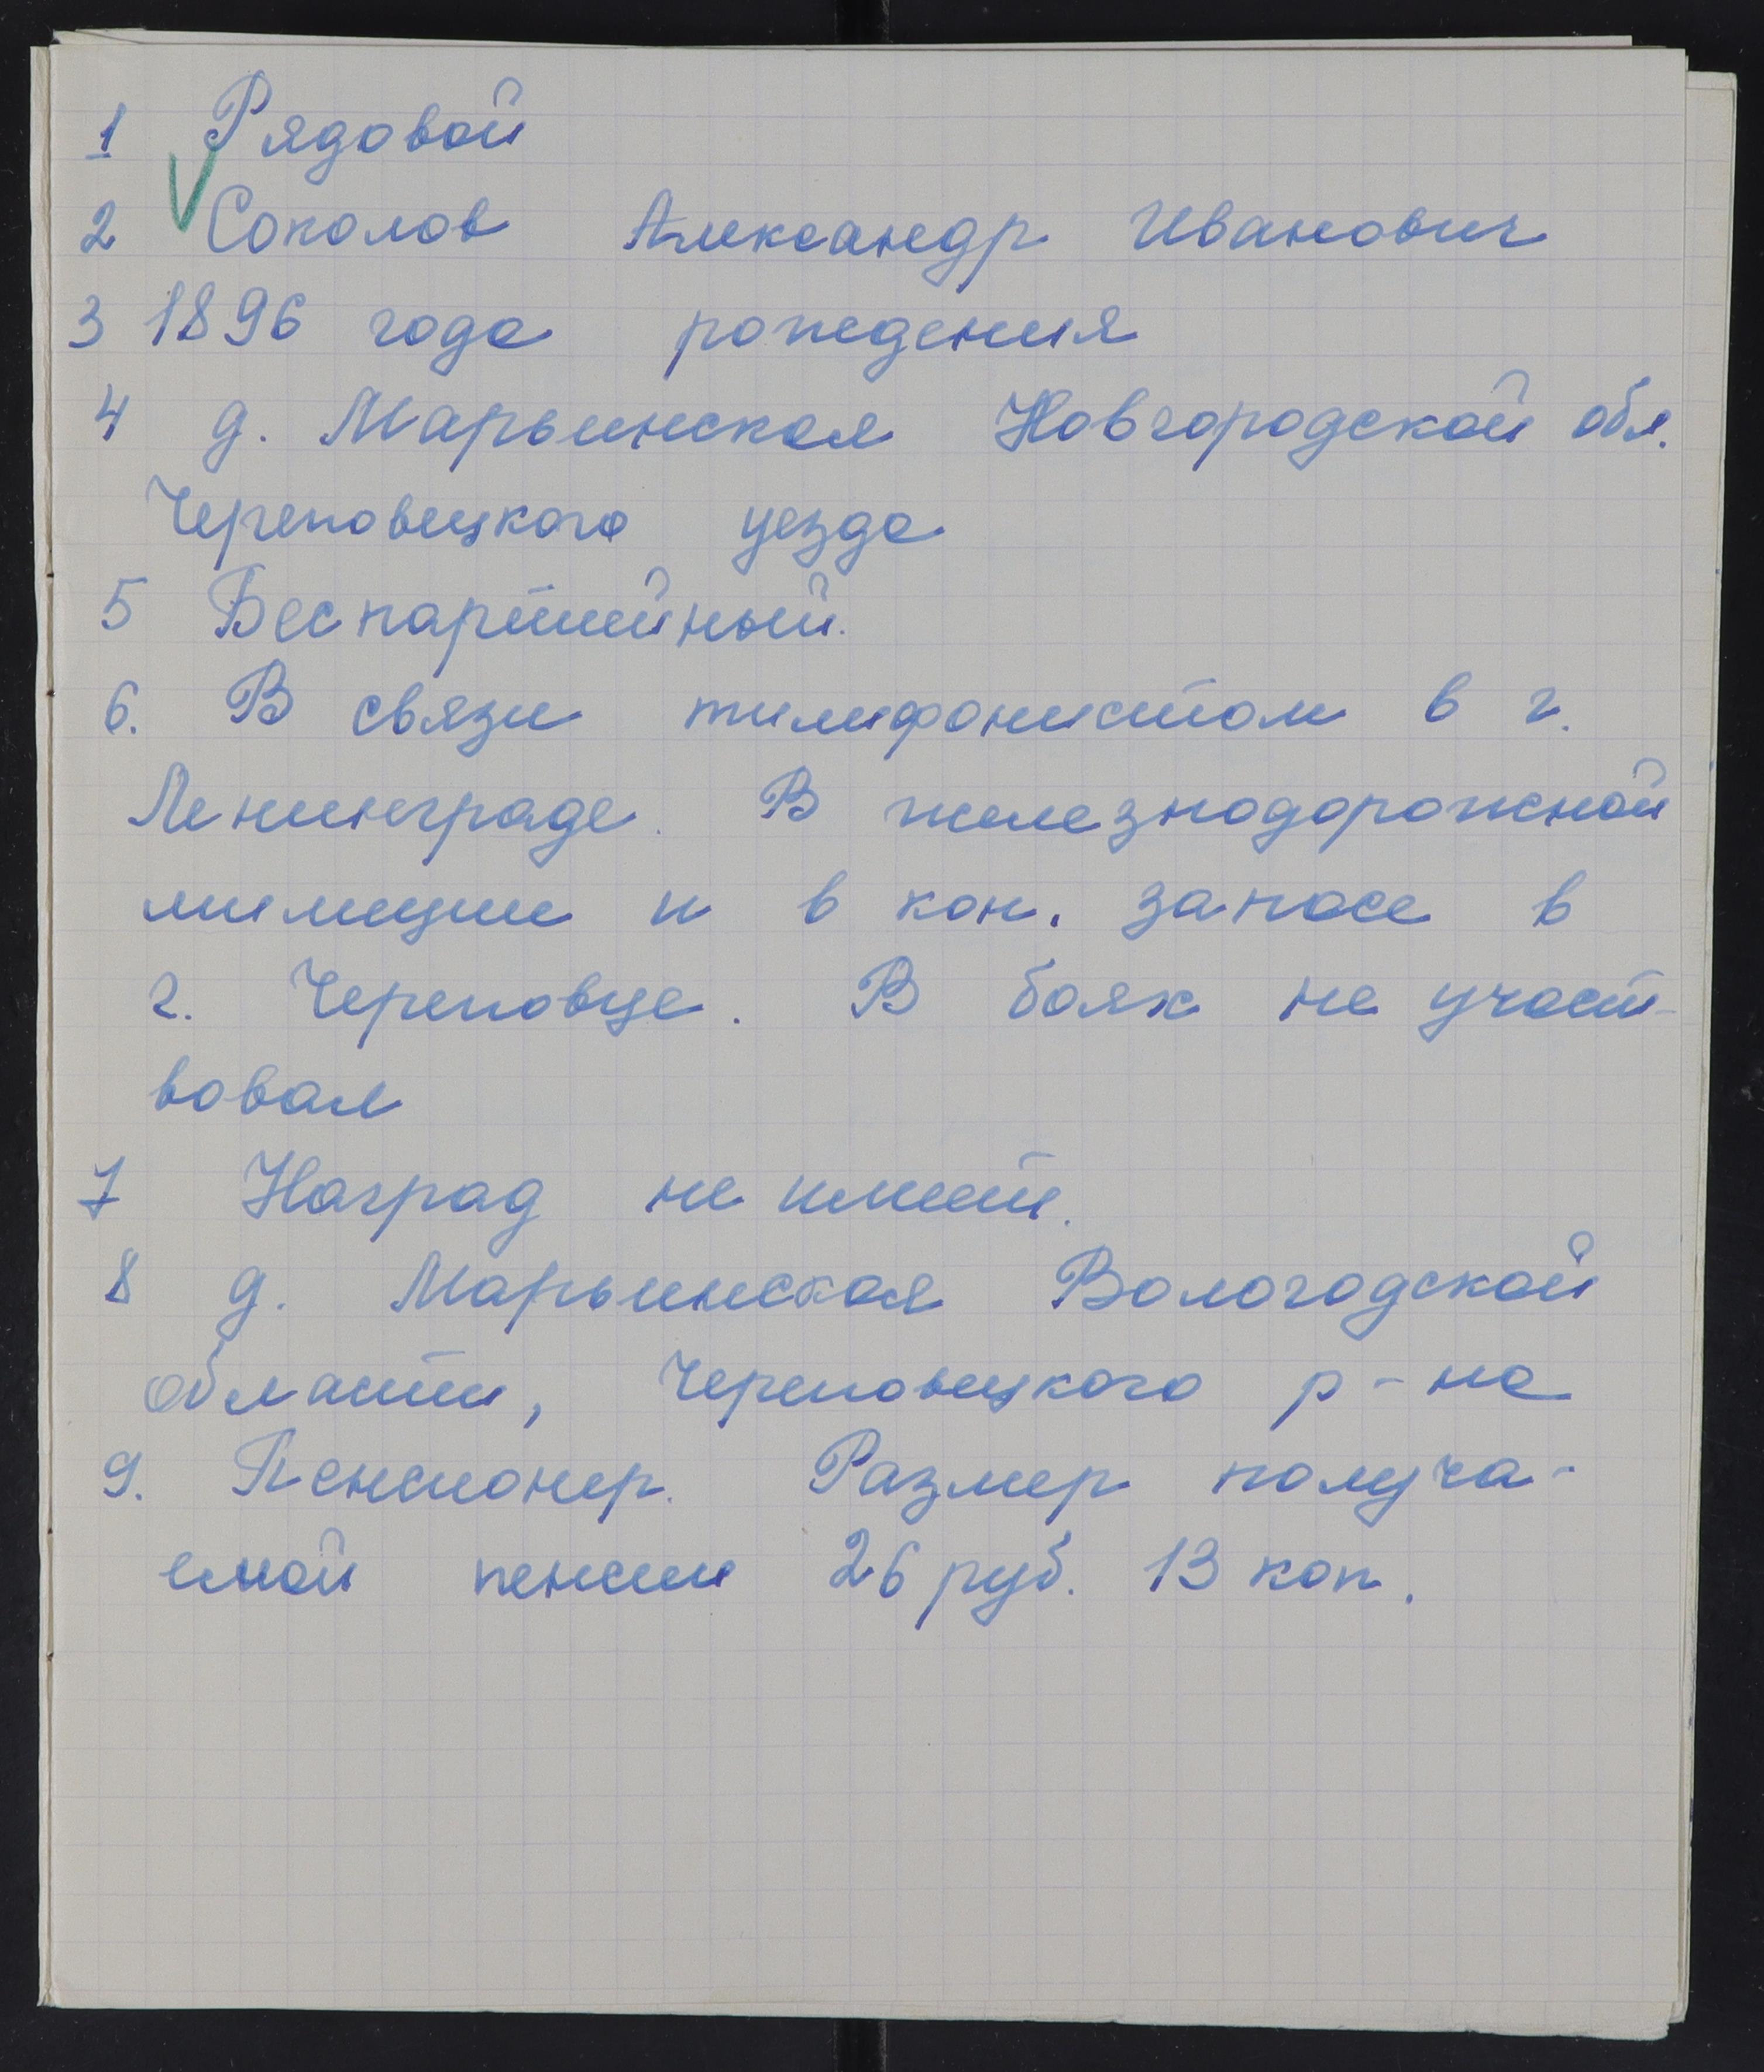 1 Рядовой
2 Соколов Александр Иванович
3 1896 года рождения
4 д. Марьинская Новгородской обл.
Череповецкого уезда
5 Беспартийный.
6. В связи тилифонистом в г.
Ленинграде. В железнодорожной
милиции и в кон. запасе в
г. Череповце. В боях не участ-
вовал
7 Наград не имеет.
8 д. Марьинская Вологодской
области, Череповецкого р-на
9. Пенсионер. Размер получа-
емой пенсии 26 руб. 13 коп.